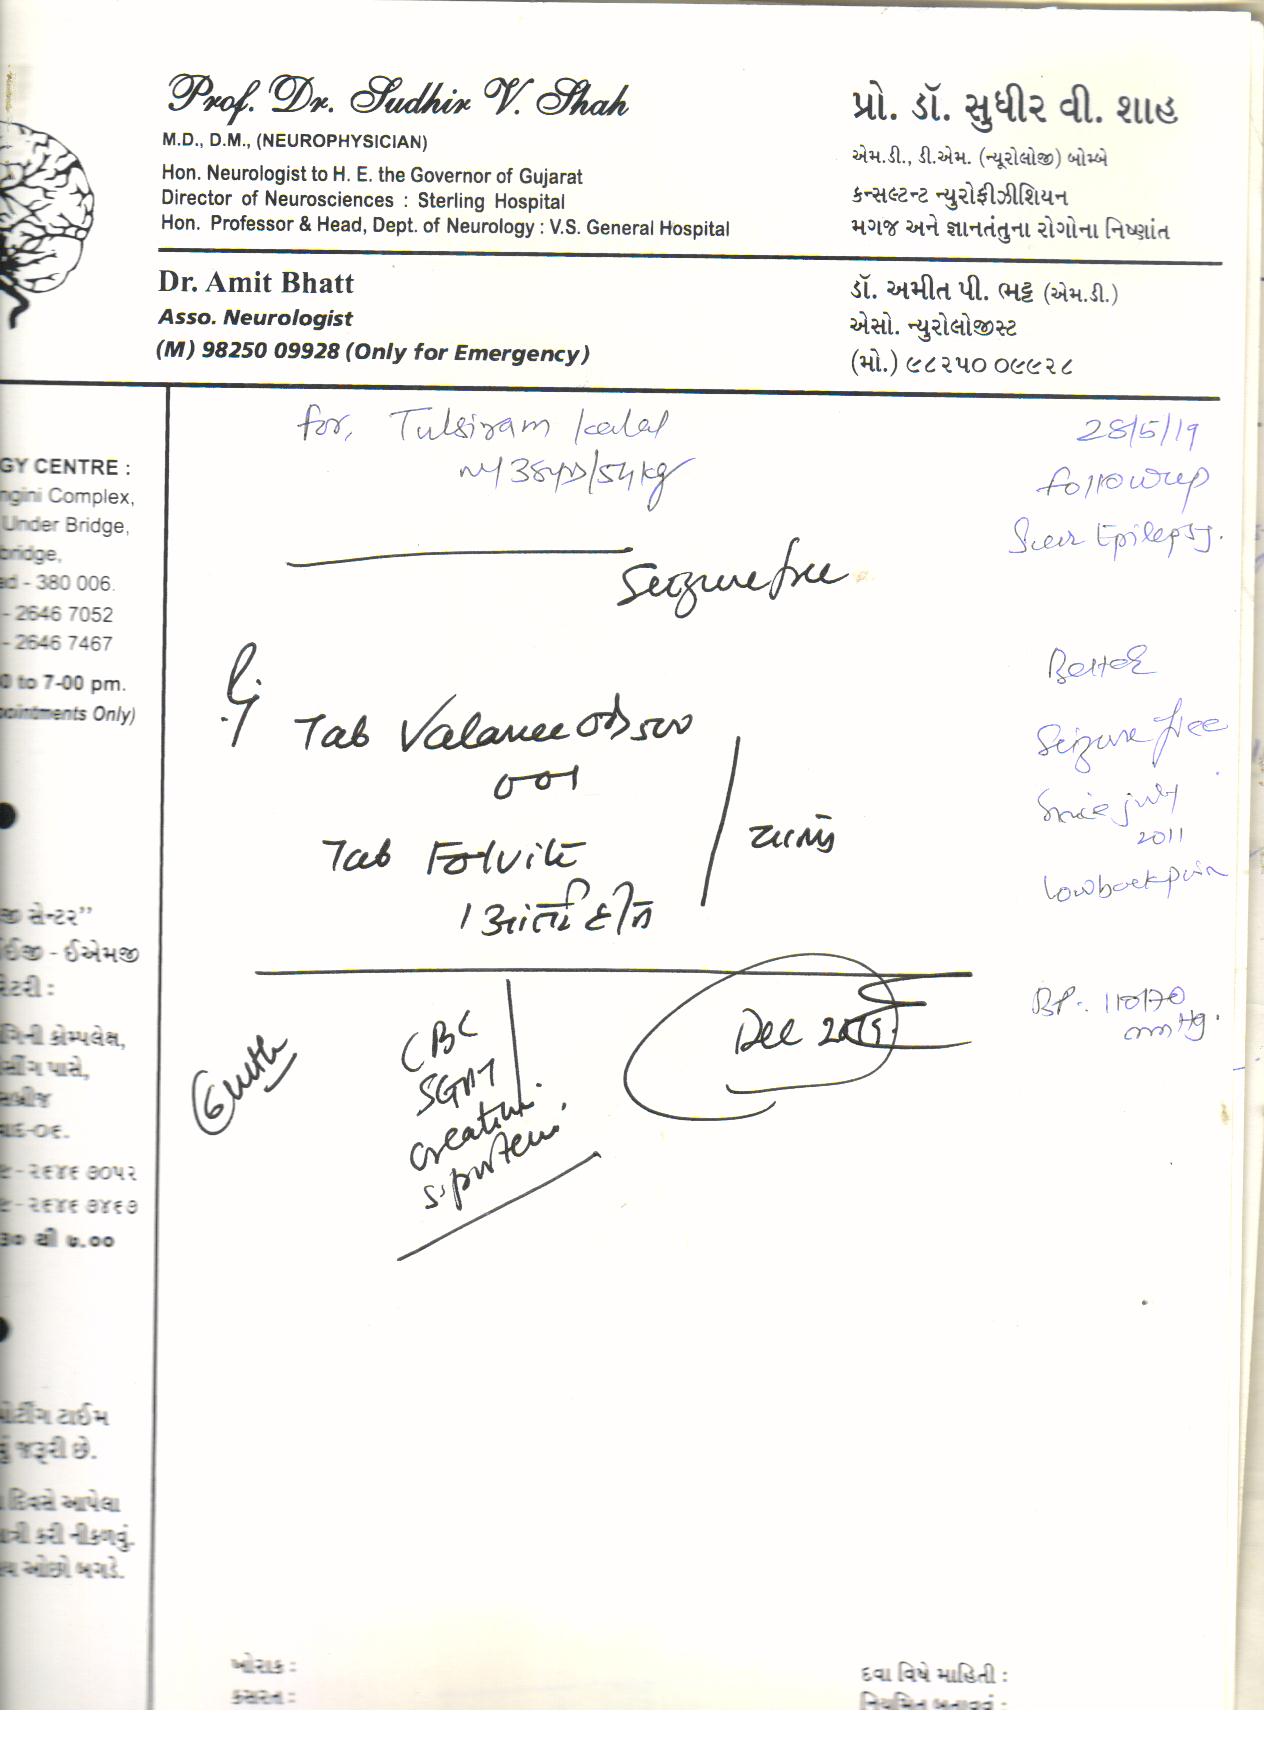 Prof. Dr. Sudhir V. Shah
M.D., D.M., (NEUROPHYSICIAN)
Hon. Neurologist to H. E. the Governor of Gujarat
Director of Neurosciences : Sterling Hospital
Hon. Professor & Head, Dept. of Neurology : V.S. General Hospital
પ્રો. ડૉ. સુધીર વી. શાહ
એમ.ડી., ડી.એમ. (ન્યૂરોલોજી) બોમ્બે
કન્સલ્ટન્ટ ન્યુરોફીઝીશિયન
મગજ અને જ્ઞાનતંતુના રોગોના નિષ્ણાંત
Dr. Amit Bhatt
Asso. Neurologist
(M) 98250 09928 (Only for Emergency)
ડૉ. અમીત પી. ભટ્ટ (એમ.ડી.)
એસો. ન્યુરોલોજીસ્ટ
(મો.) ૯૮૨૫૦ ૦૯૯૨૮
GY CENTRE :
ngini Complex,
Under Bridge,
bridge,
ad - 380 006.
- 2646 7052
- 2646 7467
0 to 7-00 pm.
pointments Only)
જી સેન્ટર”
ઈજી - ઈએમજી
રેટરી :
ગિની કોમ્પલેક્ષ,
સીંગ પાસે,
સબ્રીજ
- ૨૬૪૬ ૭૦૫૨
- ૨૬૪૬ ૭૪૬૭
૩૦ થી ૭.૦૦
ોર્ટીંગ ટાઈમ
ું જરૂરી છે.
દિવસે આપેલા
ત્રી કરી નીકળવું.
ઓછો બગડે.
for, Tulsiram
38yrs/54kg
28/5/19
followup
Epilepsy.
Seizure free
Tab Valance OD 500
001
Tab Folvite
Better
Seizure free
Since july
2011
Low back pain
BP:- 110/70
mmHg.
CBC
SGPT
creatinine
S. protein
Dec 2019
ખોરાક :
કસરત :
દવા વિષે માહિતી :
નિયમિત બતાવવું :